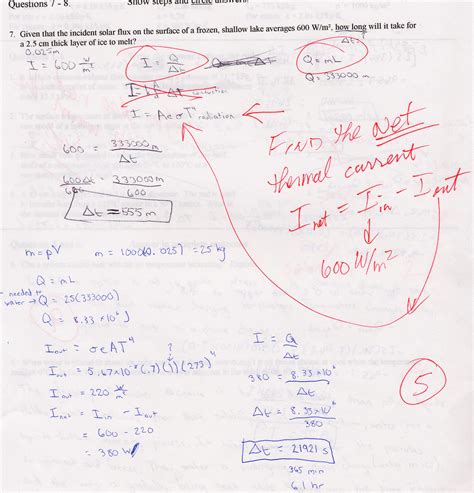 Questions 7 - 8. Show steps and circle answers.
7. Given that the incident solar flux on the surface of a frozen, shallow lake averages 600 W/m², how long will it take for
a 2.5 cm thick layer of ice to melt?
Δt=
0.025m
I = 600 W/m²
I = Q/Δt
Q = mL
Q = 333000 m
conduction
I = AeσT⁴ radiation
Find the Net
thermal current
I net = I in - I out
600 W/m²
600 = 333000m/Δt
600Δt/600 = 333000m/600
Δt = 555 m
m = ρV m = 1000(0.025) = 25 kg
Q = mL
needed to
water → Q = 25(333000)
Q = 8.33 x 10⁶ J
I out = σeAT⁴
?
I out = 5.67x10⁻⁸(.7)(1)(273)⁴
I out = 220 W/m²
I net = I in - I out
= 600 - 220
= 380 W
I = Q/Δt
380 = 8.33 x 10⁶/Δt
Δt = 8.33x10⁶/380
Δt = 21921 s
365 min
6.1 hr
5